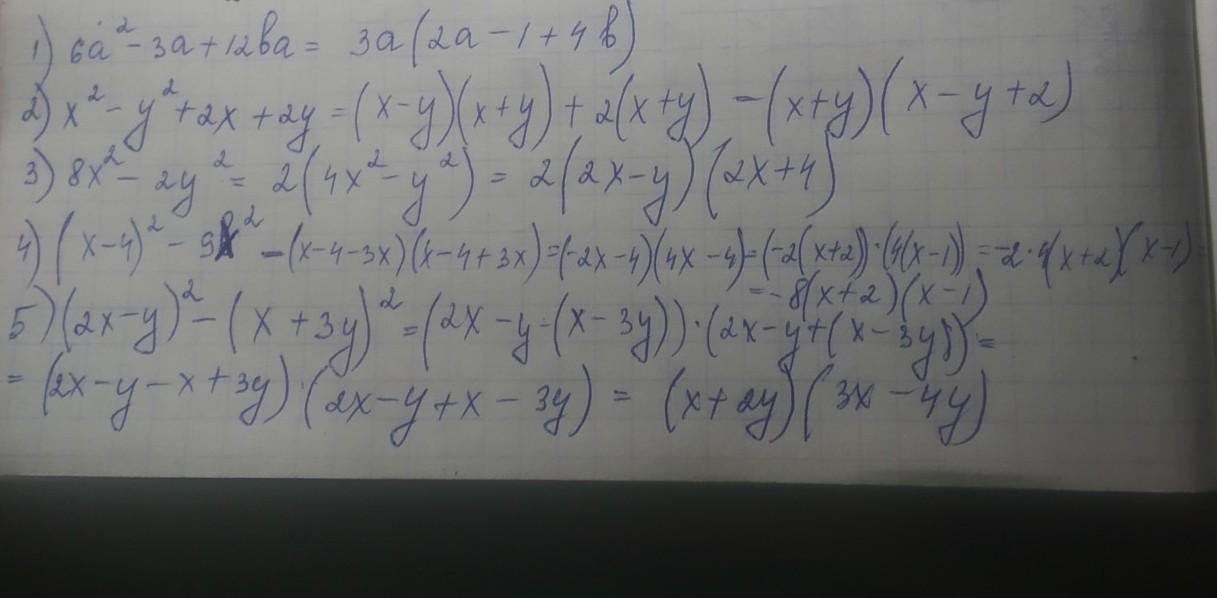 1) 6a² - 3a + 12ba = 3a(2a - 1 + 4b)
2) x² - y² + 2x + 2y = (x-y)(x+y) + 2(x+y) - (x+y)(x - y + 2)
3) 8x² - 2y² = 2(4x² - y²) = 2(2x - y)(2x + 4)
4) (x-4)² - 9x² - (x-4-3x)(x-4+3x) = (-2x-4)(4x-4) = (-2(x+2))·(4(x-1)) = -2·4(x+2)(x-1) =
= -8(x+2)(x-1)
5) (2x-y)² - (x+3y)² = (2x - y - (x-3y))·(2x-y+(x-3y)) =
= (2x-y-x+3y)·(2x-y+x-3y) = (x+2y)(3x-4y)